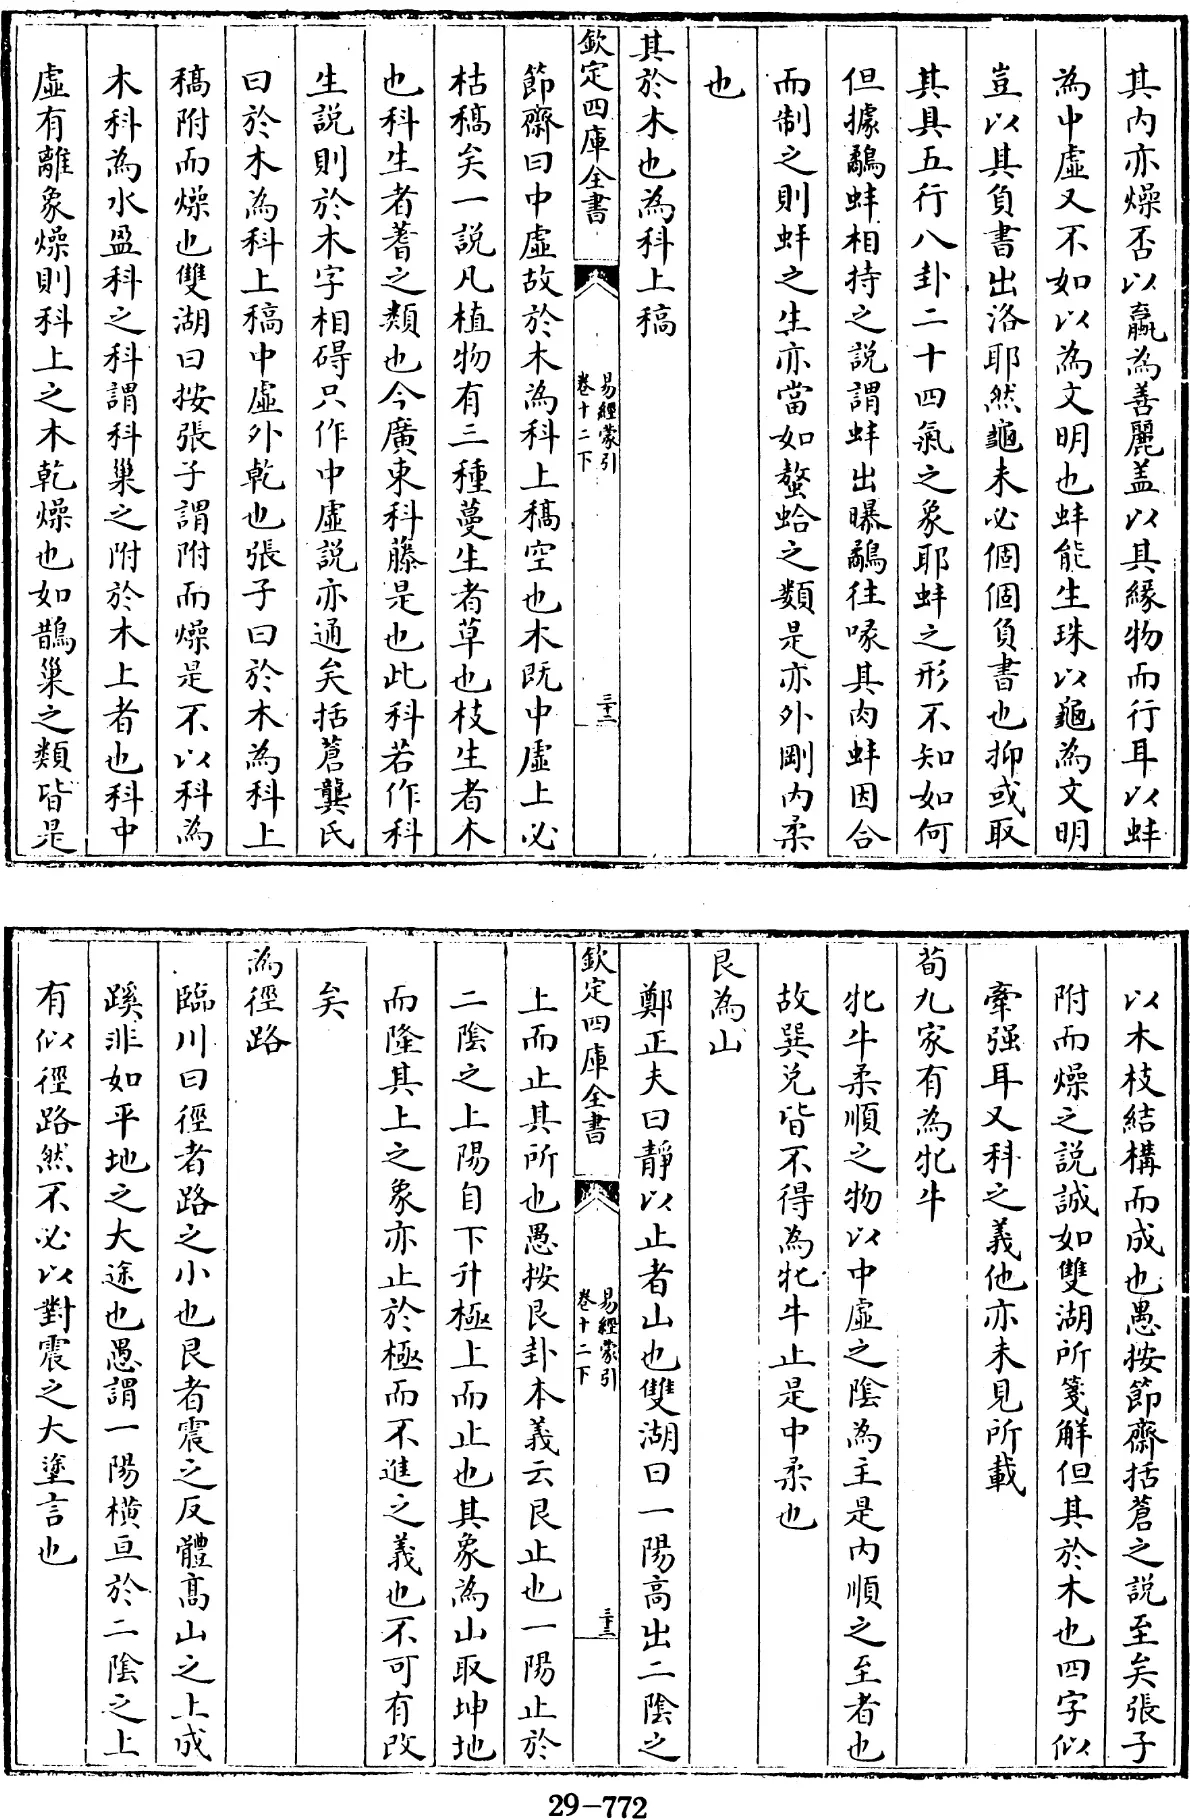 其内亦燥否以蠃為善麗盖以其縁物而行耳以蚌
為中虚又不如以為文明也蚌能生珠以龜為文明
豈以其負書出洛耶然龜未必個個負書也抑或取
其具五行八卦二十四氣之象耶蚌之形不知如何
但據鷸蚌相持之説謂蚌出曝鷸往啄其肉蚌因合
而制之則蚌之生亦當如螯蛤之類是亦外剛内柔
也
其於木也為科上稿
欽定四庫全書
易經蒙引
卷十二下
三十二
節齋曰中虚故於木為科上稿空也木既中虚上必
枯稿矣一説凡植物有三種蔓生者草也枝生者木
也科生者蓍之類也今廣東科藤是也此科若作科
生説則於木字相碍只作中虚説亦通矣括蒼龔氏
曰於木為科上稿中虚外乾也張子曰於木為科上
稿附而燥也雙湖曰按張子謂附而燥是不以科為
木科為水盈科之科謂科巢之附於木上者也科中
虚有離象燥則科上之木乾燥也如鵲巢之類皆是
以木枝結構而成也愚按節齋括蒼之説至矣張子
附而燥之説誠如雙湖所箋解但其於木也四字似
牽强耳又科之義他亦未見所載
荀九家有為牝牛
牝牛柔順之物以中虚之陰為主是内順之至者也
故巽兌皆不得為牝牛止是中柔也
艮為山
鄭正夫曰靜以止者山也雙湖曰一陽高出二陰之
欽定四庫全書
易經蒙引
卷十二下
三十三
上而止其所也愚按艮卦本義云艮止也一陽止於
二陰之上陽自下升極上而止也其象為山取坤地
而隆其上之象亦止於極而不進之義也不可有改
矣
為徑路
臨川曰徑者路之小也艮者震之反體高山之上成
蹊非如平地之大途也愚謂一陽横亘於二陰之上
有似徑路然不必以對震之大塗言也
29-772